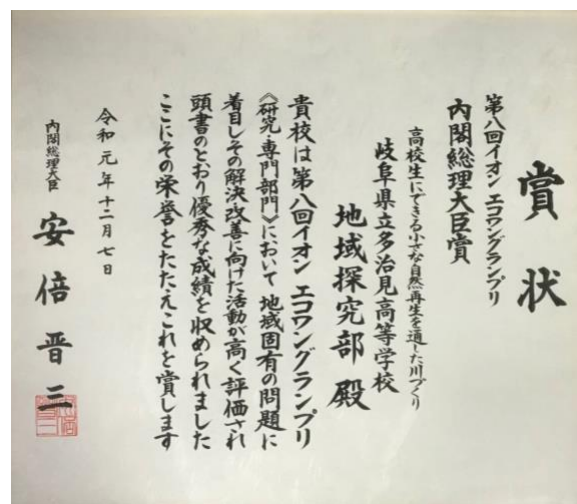 賞状
第八回イオン エコワングランプリ
内閣総理大臣賞
高校生にできる小さな自然再生を通した川づくり
岐阜県立多治見高等学校
地域探究部 殿
貴校は第八回イオン エコワングランプリ
《研究・専門部門》において 地域固有の問題に
着目しその解決改善に向けた活動が高く評価され
頭書のとおり優秀な成績を収められました
ここにその栄誉をたたえこれを賞します
令和元年十二月七日
内閣総理大臣 安倍晋三